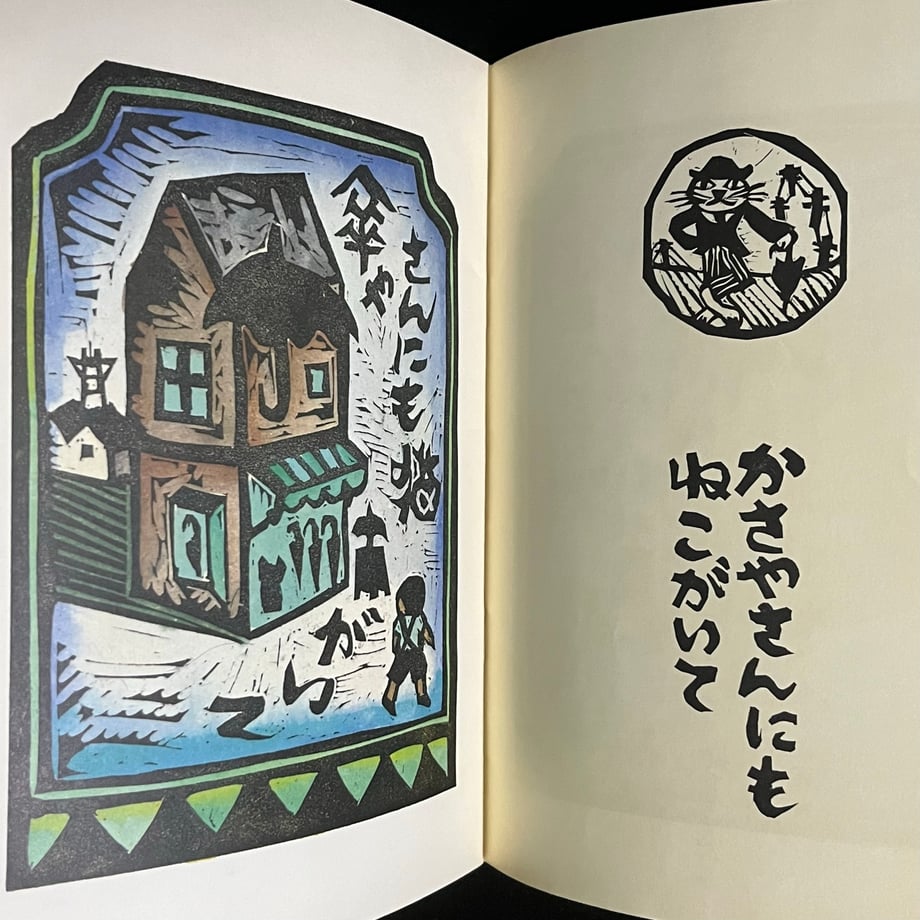 かさやさんにも
ねこがいて
傘や
さんにも猫
がいて